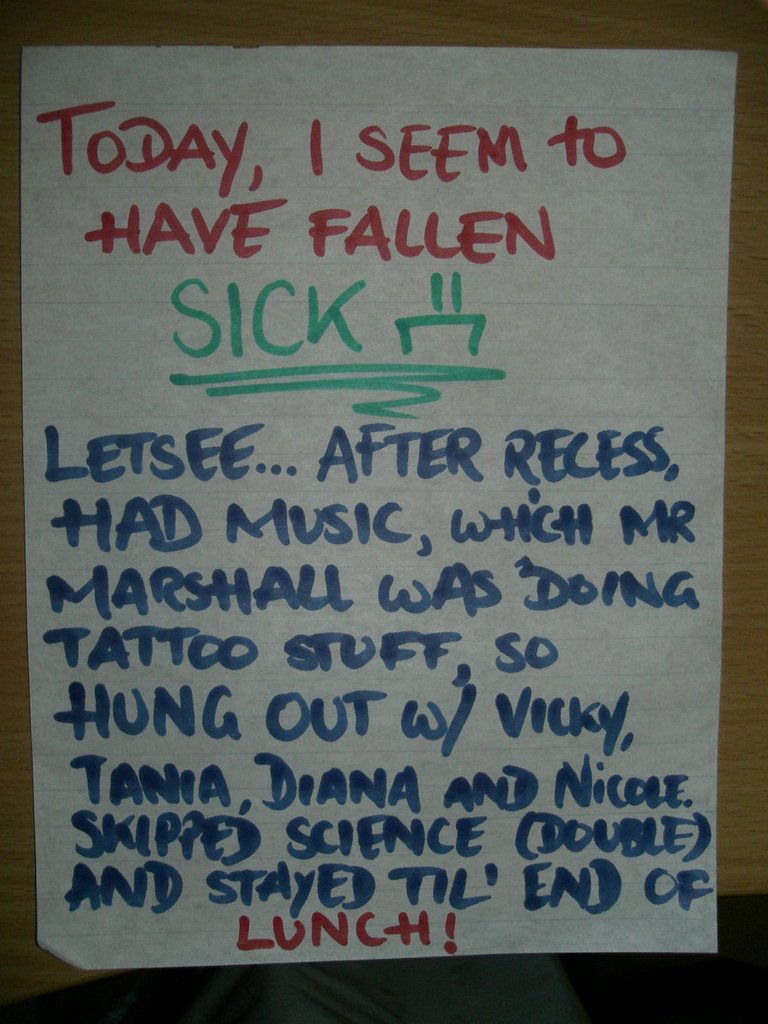 TODAY, I SEEM TO
HAVE FALLEN
SICK
LETSEE... AFTER RECESS,
HAD MUSIC, WHICH MR
MARSHALL WAS DOING
TATTOO STUFF, SO
HUNG OUT W/ VICKY,
TANIA, DIANA AND NICOLE.
SKIPPED SCIENCE (DOUBLE)
AND STAYED TIL' END OF
LUNCH!